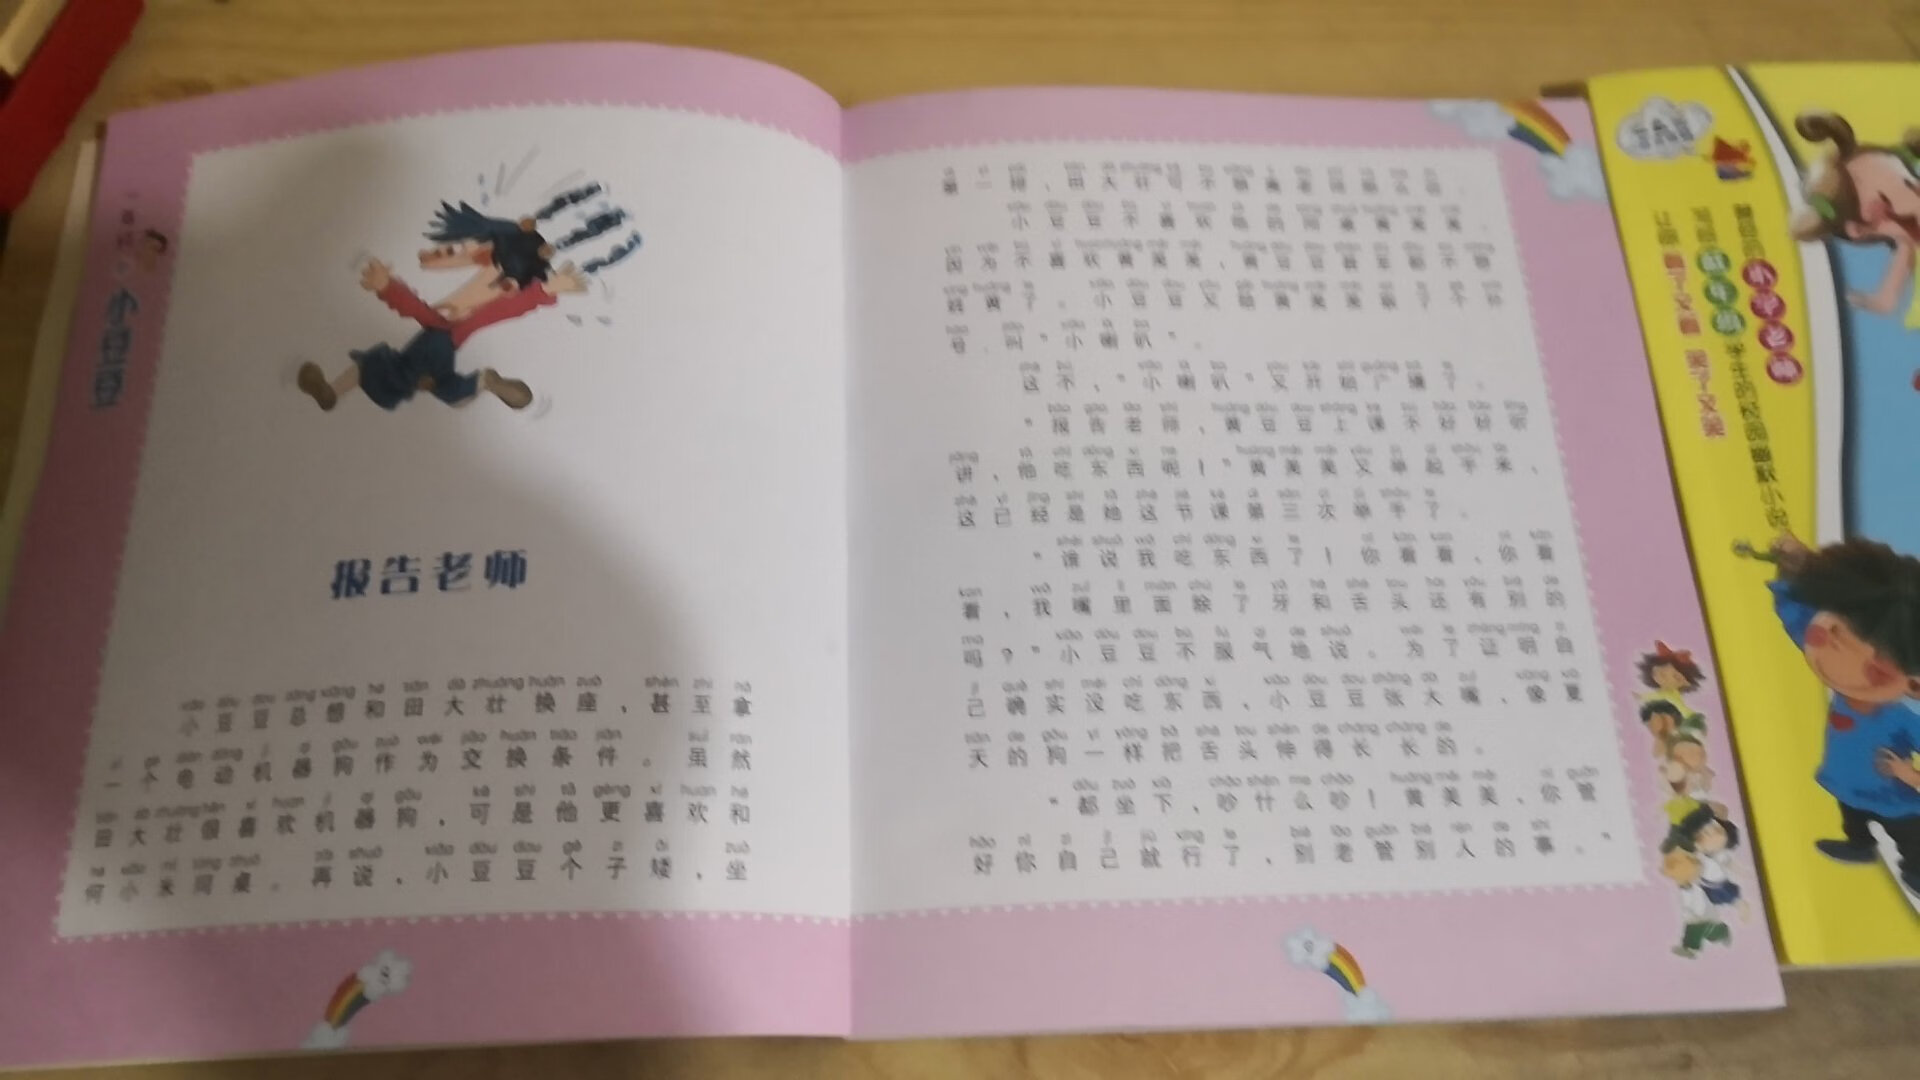 小豆豆
报告老师
小豆豆总想和田大壮换座，甚至拿
一个电动机器狗作为交换条件。虽然
田大壮很喜欢机器狗，可是他更喜欢和
何小米同桌。再说，小豆豆个子矮，坐
8
第一排，田大壮可不
小豆豆不喜欢他的同桌黄美美，
因为不喜欢黄美美，黄豆豆甚至都不想
姓黄了。小豆豆又给黄美美取了个外
号，叫“小喇叭”。
这不，“小喇叭”又开始广播了。
“报告老师，黄豆豆上课不好好听
讲，他吃东西呢！”黄美美又举起手来，
这已经是她这节课第三次举手了。
“谁说我吃东西了！你看看，你看
看，我嘴里面除了牙和舌头还有别的
吗？”小豆豆不服气地说。为了证明自
己确实没吃东西，小豆豆张大嘴，像夏
天的狗一样把舌头伸得长长的。
“都坐下，吵什么吵！黄美美，你管
好你自己就行了，别老管别人的事。”
9
小个老师
笑了又笑
学生的校园幽默小说